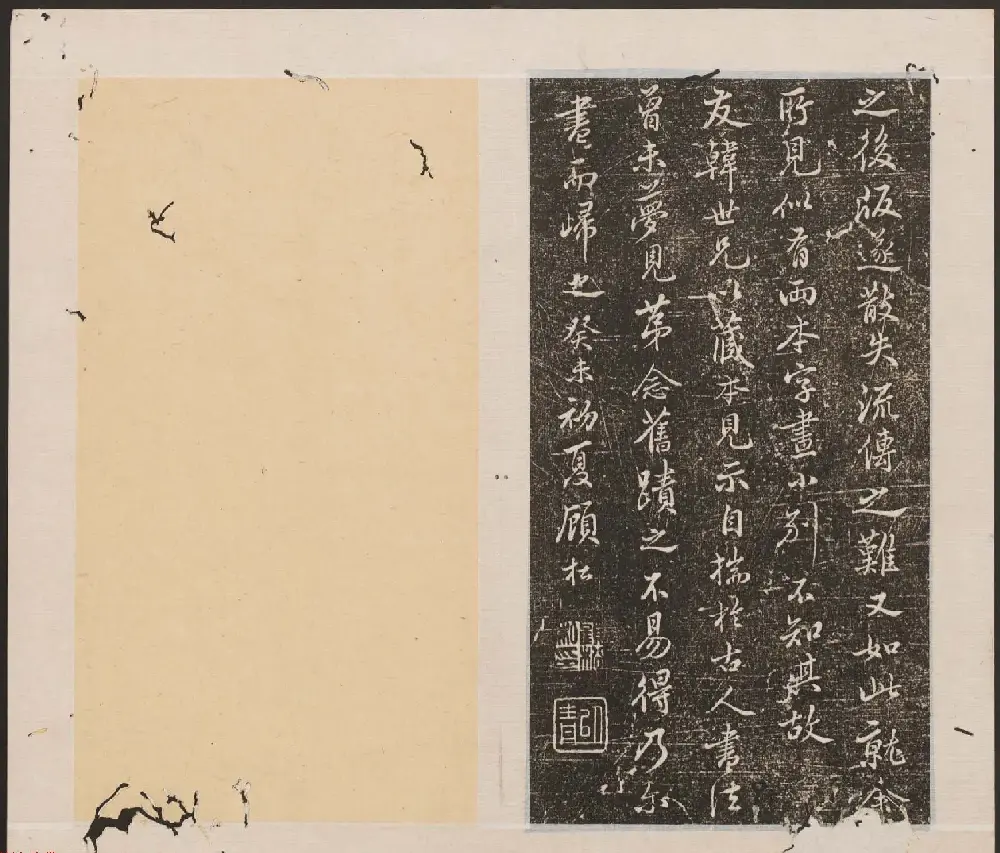 之後版遂散失流傳之難又如此就余
所見似有兩本字畫小別不知其故
友韓世兄以藏本見示自揣於古人書法
曾未夢見第念舊蹟之不易得乃
書而歸之癸未初夏顧杜